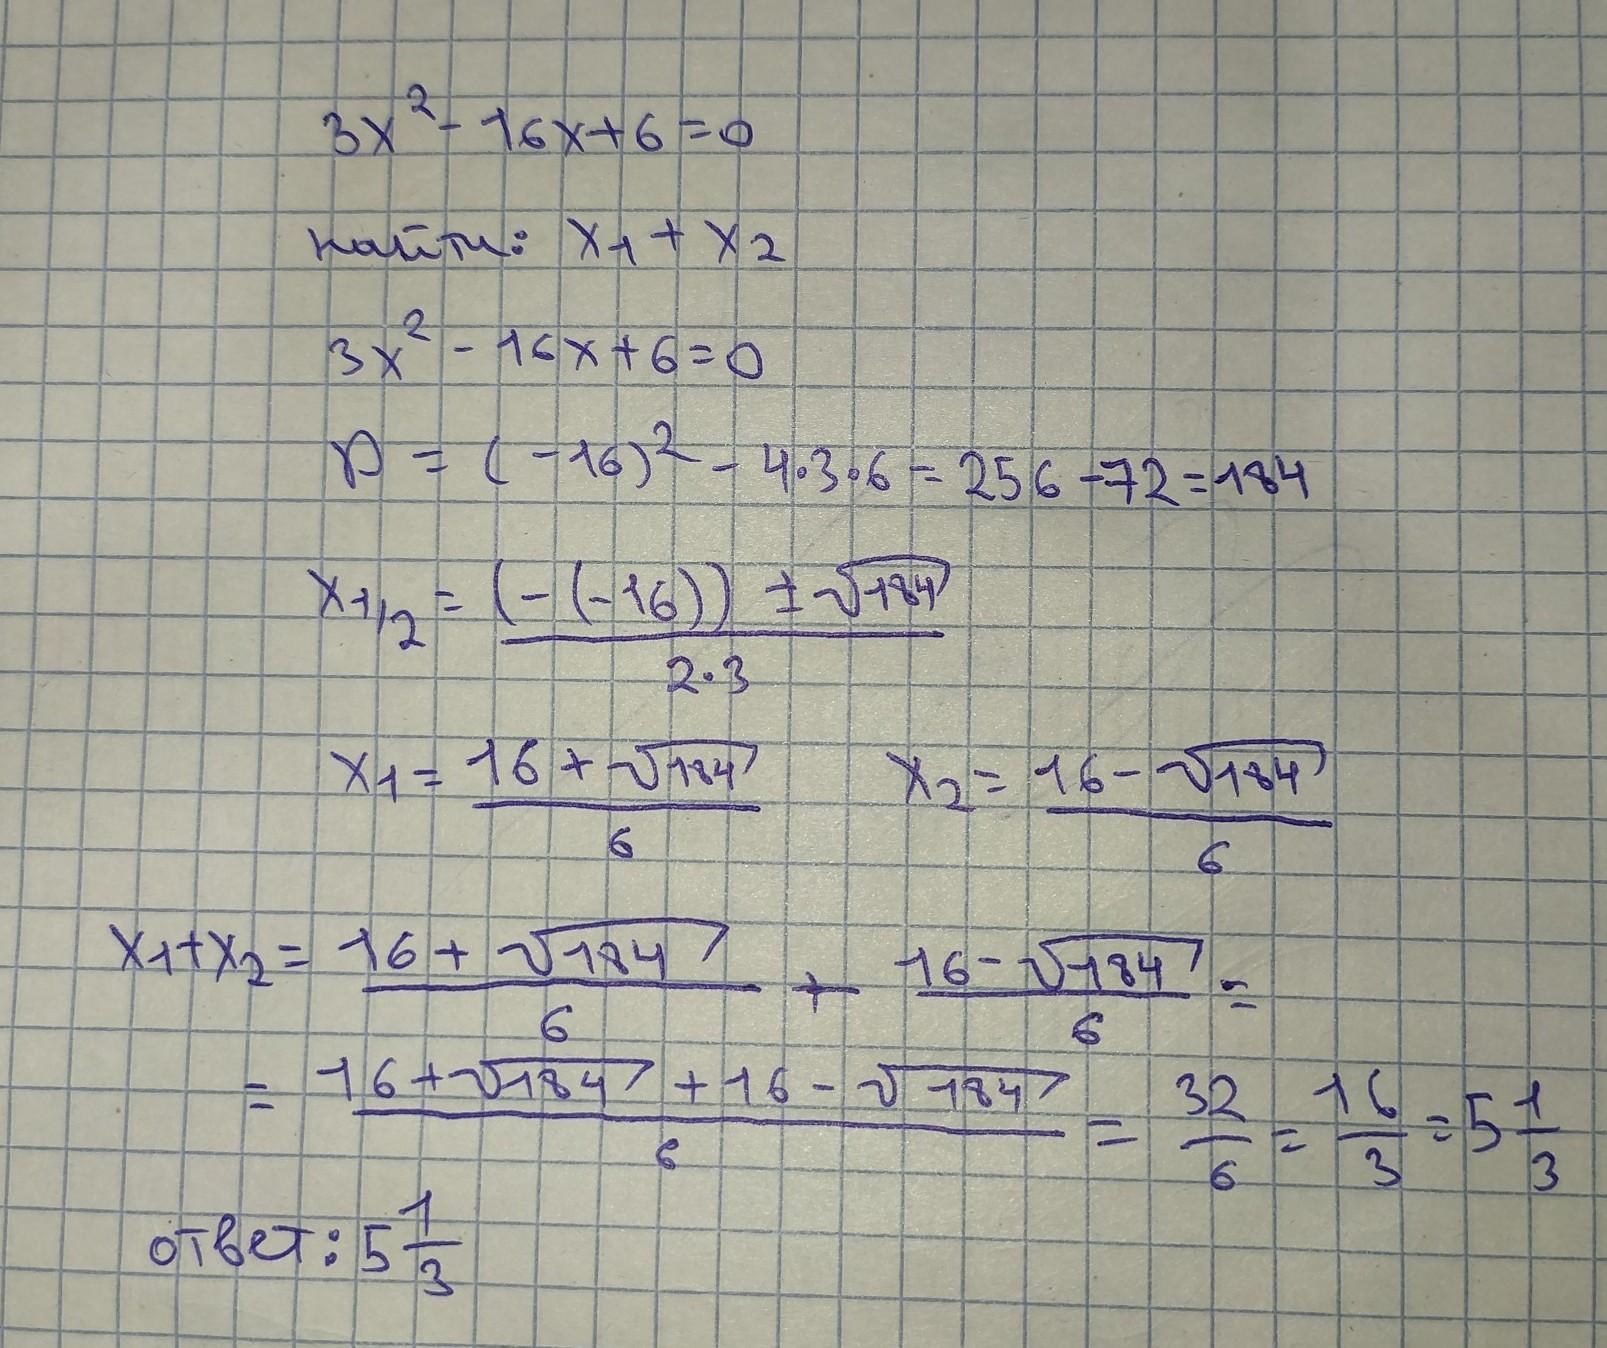 3x² - 16x + 6 = 0
найти: x₁ + x₂
3x² - 16x + 6 = 0
D = (-16)² - 4·3·6 = 256 - 72 = 184
x₁/₂ = (-(-16)) ± √184 / 2·3
x₁ = 16 + √184 / 6   x₂ = 16 - √184 / 6
x₁ + x₂ = 16 + √184 / 6 + 16 - √184 / 6 =
= 16 + √184 + 16 - √184 / 6 = 32/6 = 16/3 = 5 1/3
ответ: 5 1/3